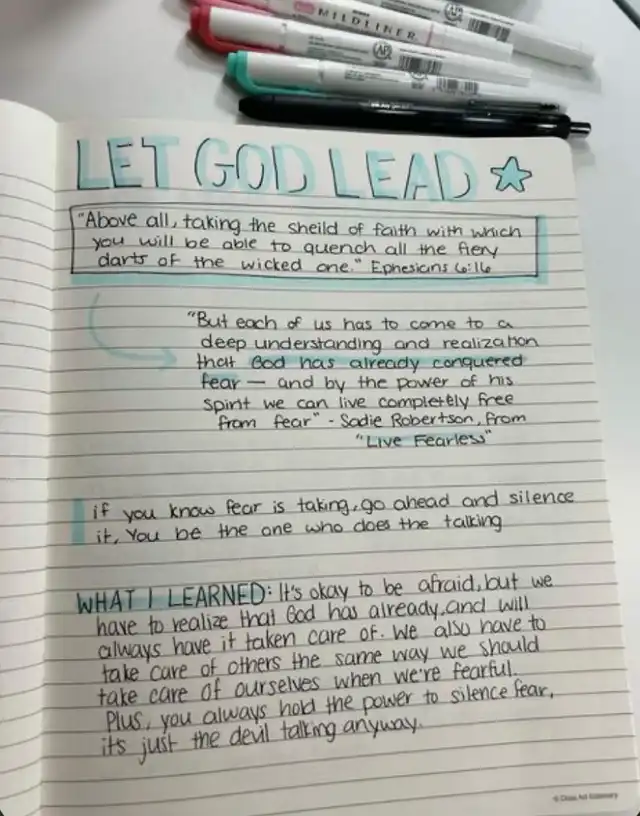 MILDLINER
AP
AP
LET GOD LEAD
"Above all, taking the sheild of faith with which
you will be able to quench all the fiery
darts of the wicked one." Ephesians 6:16
"But each of us has to come to a
deep understanding and realization
that God has already conquered
fear — and by the power of his
spirit we can live completely free
from fear" - Sadie Robertson, from
"Live Fearless"
if you know fear is taking, go ahead and silence
it, You be the one who does the talking
WHAT I LEARNED: It's okay to be afraid, but we
have to realize that God has already, and will
always have it taken care of. We also have to
take care of others the same way we should
take care of ourselves when we're fearful.
Plus, you always hold the power to silence fear,
it's just the devil talking anyway.